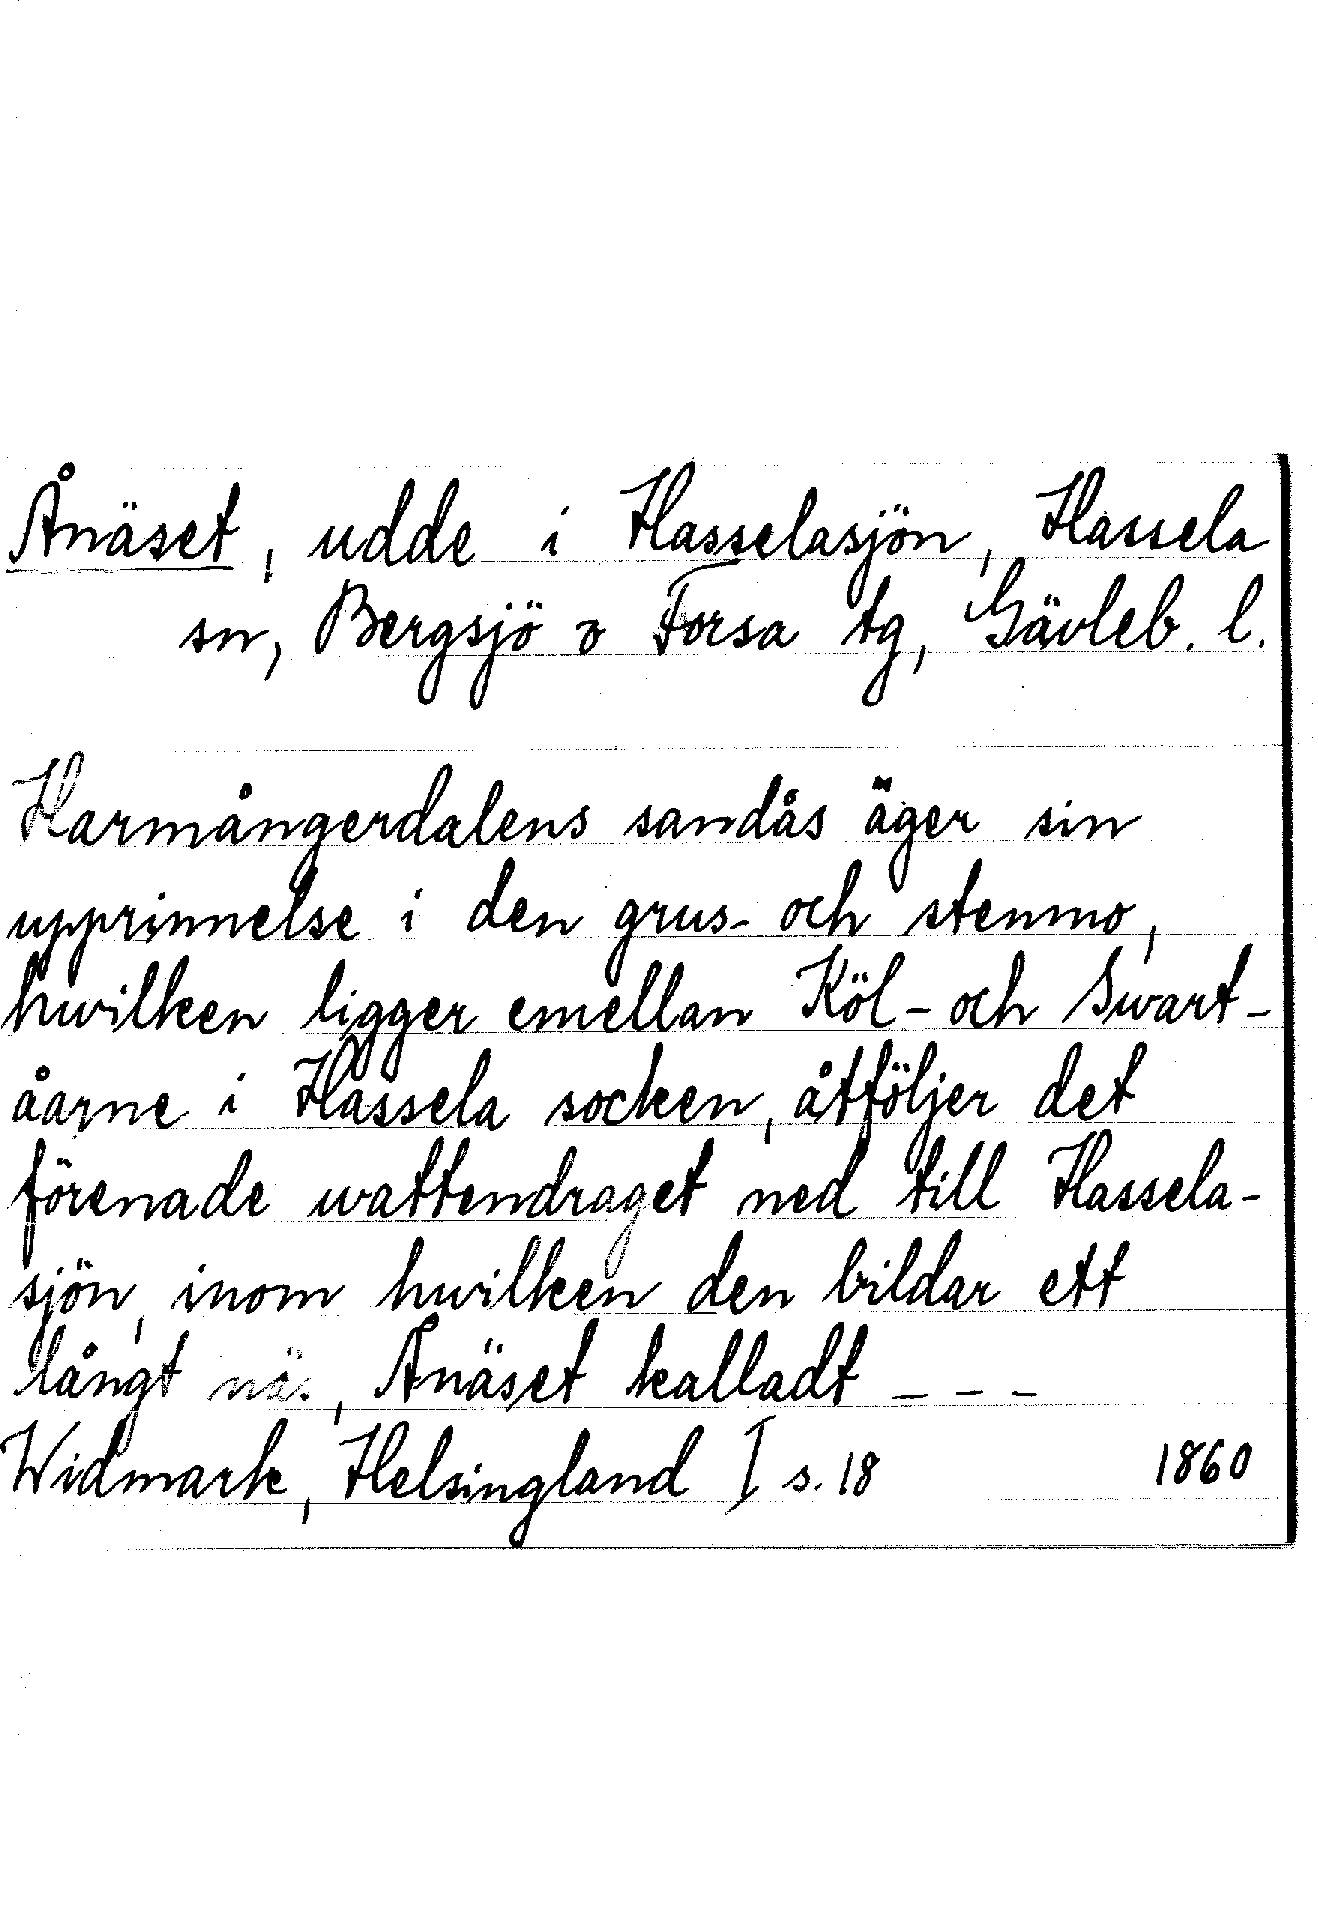 Ånäset, udde i Hasselasjön, Hassela
sn, Bergsjö o Forsa tg, Gävleb. l.
Harmångerdalens sandås äger sin
upprinnelse i den grus- och stenmo,
hwilken ligger emellan Köl- och Swart-
åarne i Hassela socken, åtföljer det
förenade wattendraget ned till Hassela-
sjön, inom hwilken den bildar ett
långt näs, Ånäset kalladt - - -
Widmark, Helsingland I s. 18 1860